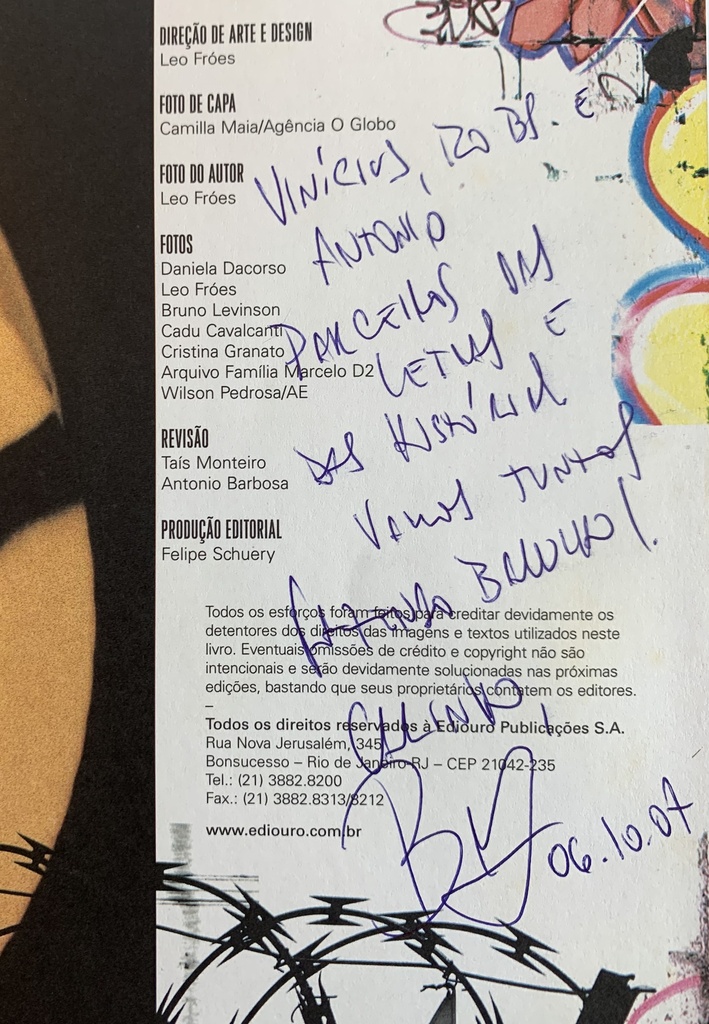 DIREÇÃO DE ARTE E DESIGN
Leo Fróes
FOTO DE CAPA
Camilla Maia/Agência O Globo
FOTO DO AUTOR
Leo Fróes
FOTOS
Daniela Dacorso
Leo Fróes
Bruno Levinson
Cadu Cavalcanti
Cristina Granato
Arquivo Família Marcelo D2
Wilson Pedrosa/AE
REVISÃO
Taís Monteiro
Antonio Barbosa
PRODUÇÃO EDITORIAL
Felipe Schuery
VINÍCIUS, E
ANTONIO
PARCEIROS DAS
LETRAS E
DAS HISTÓRIAS
VAMOS JUNTOS
BARULHO!
CARINHO,
06.10.07
Todos os esforços foram feitos para creditar devidamente os
detentores dos direitos das imagens e textos utilizados neste
livro. Eventuais omissões de crédito e copyright não são
intencionais e serão devidamente solucionadas nas próximas
edições, bastando que seus proprietários contatem os editores.
–
Todos os direitos reservados à Ediouro Publicações S.A.
Rua Nova Jerusalém, 345
Bonsucesso – Rio de Janeiro-RJ – CEP 21042-235
Tel.: (21) 3882.8200
Fax.: (21) 3882.8313/8212
www.ediouro.com.br